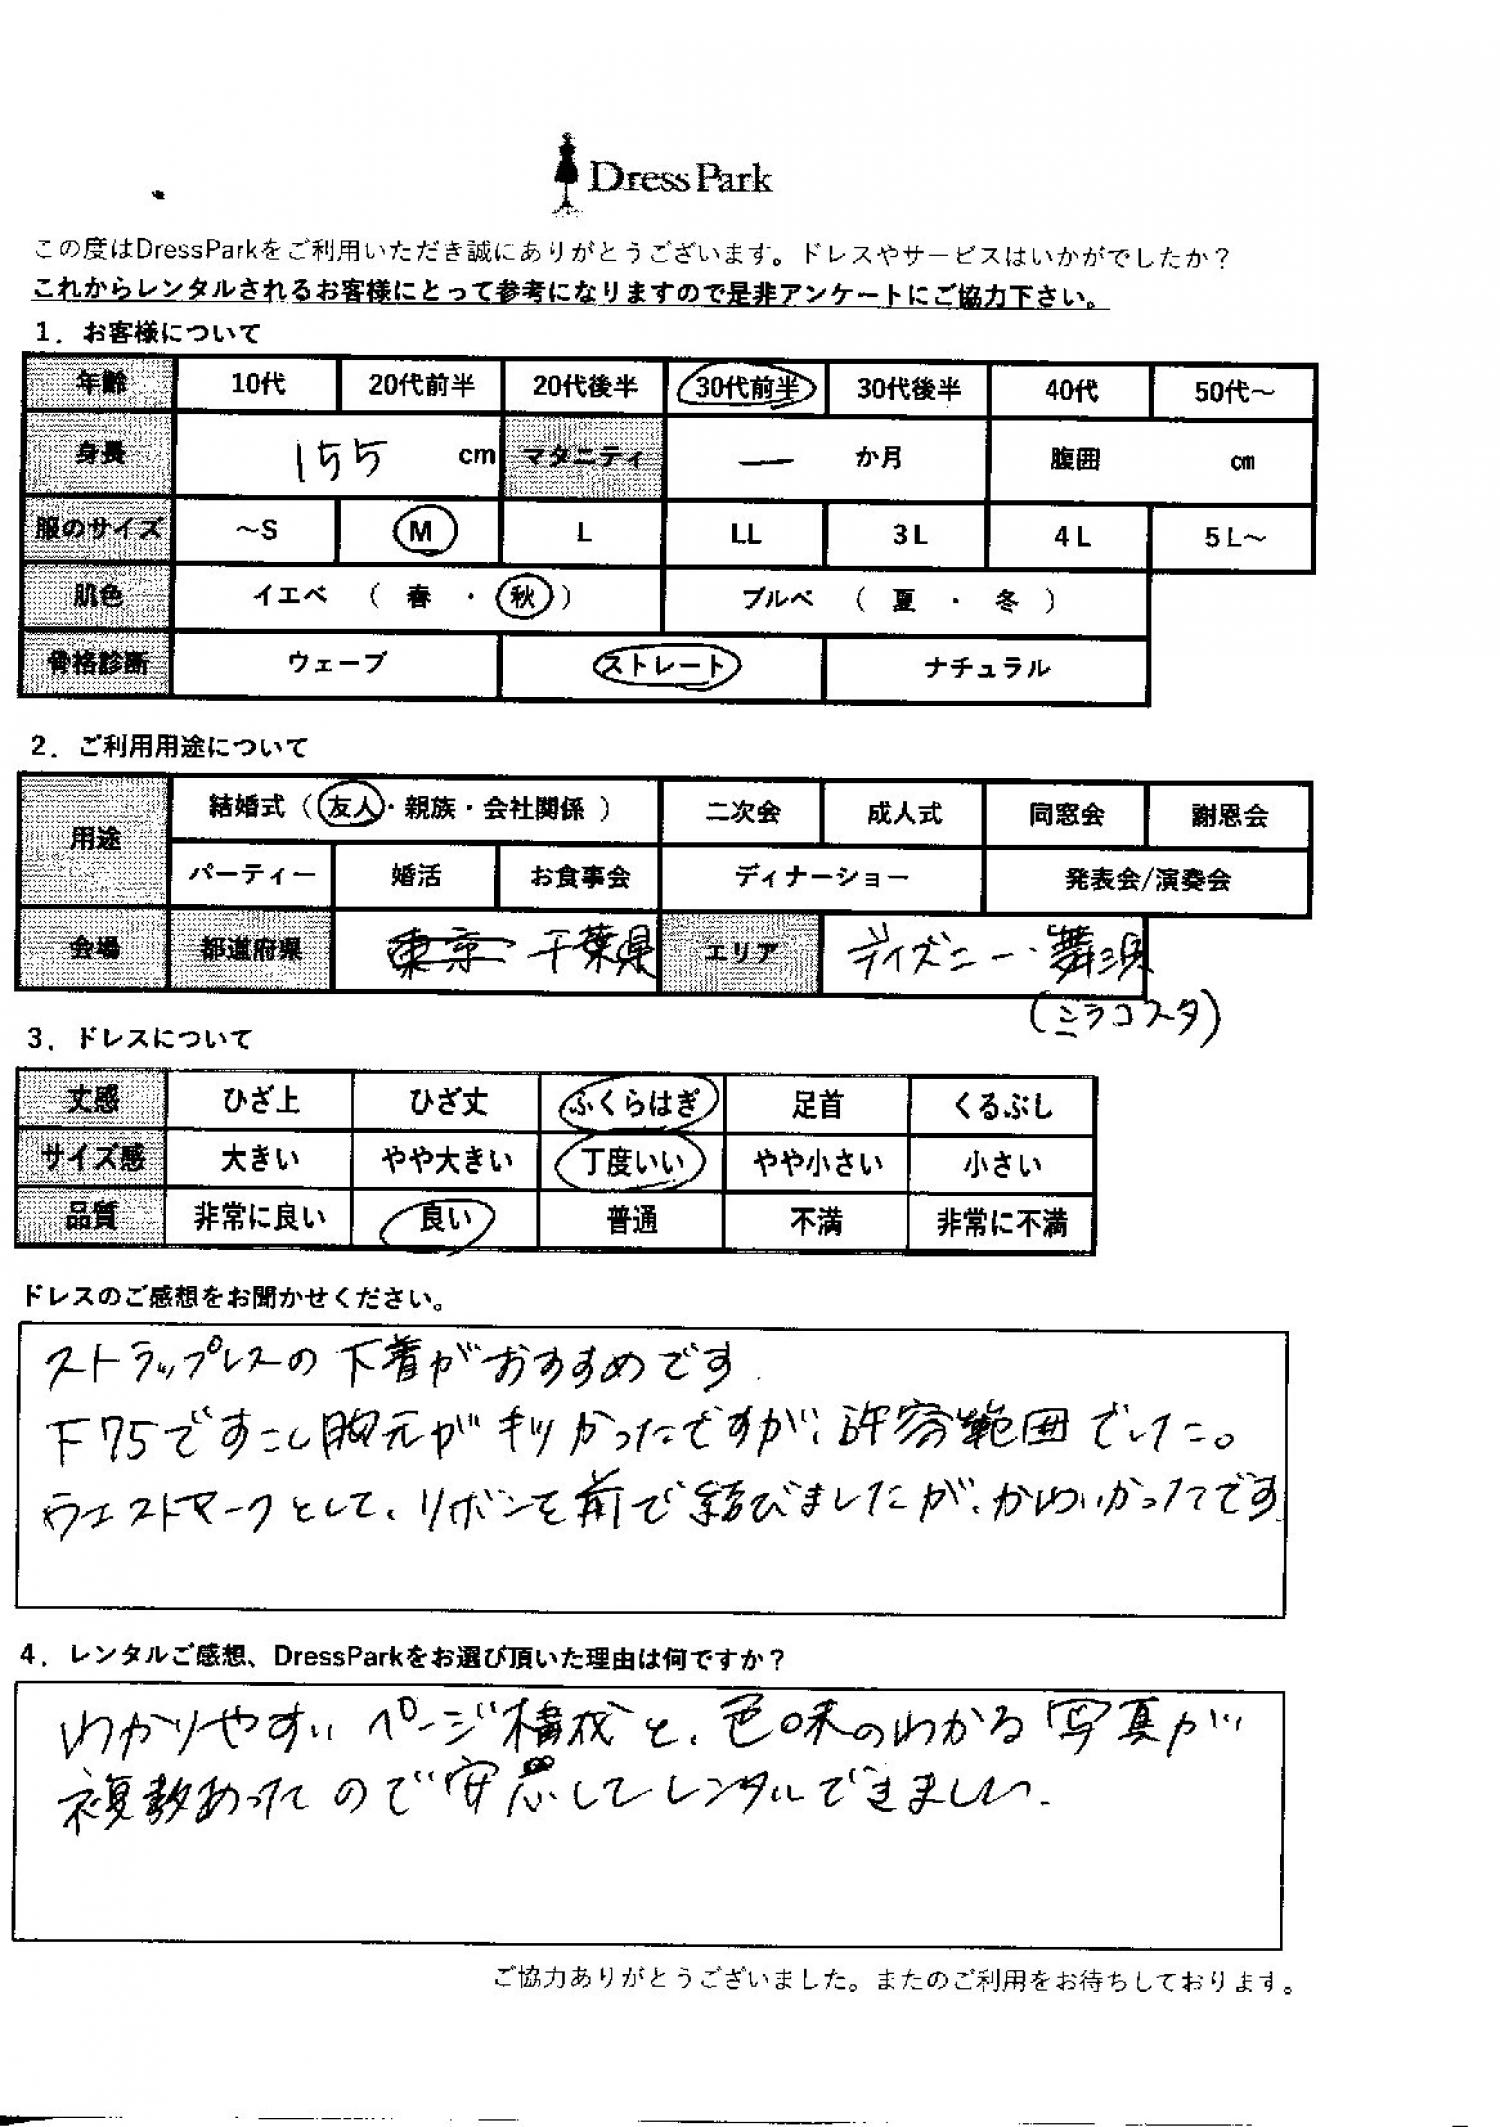 Dress Park
この度はDressParkをご利用いただき誠にありがとうございます。ドレスやサービスはいかがでしたか？
これからレンタルされるお客様にとって参考になりますので是非アンケートにご協力下さい。
1．お客様について
年齢 10代 20代前半 20代後半 30代前半 30代後半 40代 50代～
身長 155 cm マタニティ ー か月 腹囲 cm
服のサイズ ～S M L LL 3L 4L 5L～
肌色 イエベ （ 春 ・ 秋 ） ブルベ （ 夏 ・ 冬 ）
骨格診断 ウェーブ ストレート ナチュラル
2．ご利用用途について
用途 結婚式（ 友人・親族・会社関係 ） 二次会 成人式 同窓会 謝恩会
パーティー 婚活 お食事会 ディナーショー 発表会/演奏会
会場 都道府県 東京 千葉県 エリア ディズニー・舞浜
(ミラコスタ)
3．ドレスについて
丈感 ひざ上 ひざ丈 ふくらはぎ 足首 くるぶし
サイズ感 大きい やや大きい 丁度いい やや小さい 小さい
品質 非常に良い 良い 普通 不満 非常に不満
ドレスのご感想をお聞かせください。
ストラップレスの下着がおすすめです
下75ですこし胸元がキツかったですが、許容範囲でした。
ウエストマークとして、リボンを前で結びましたが、かわいかったです
4．レンタルご感想、DressParkをお選び頂いた理由は何ですか？
わかりやすいページ構成と、色味のわかる写真が
複数あったので安心してレンタルできました.
ご協力ありがとうございました。またのご利用をお待ちしております。